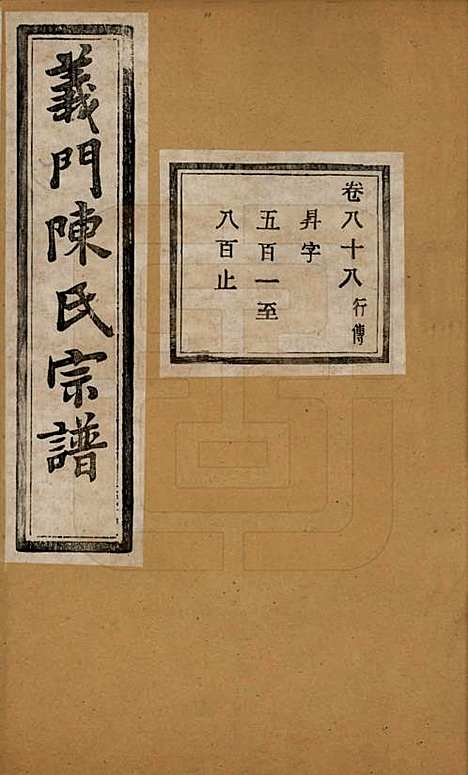 卷八十八 行傳
昇字
五百一至
八百止
義門陳氏宗譜